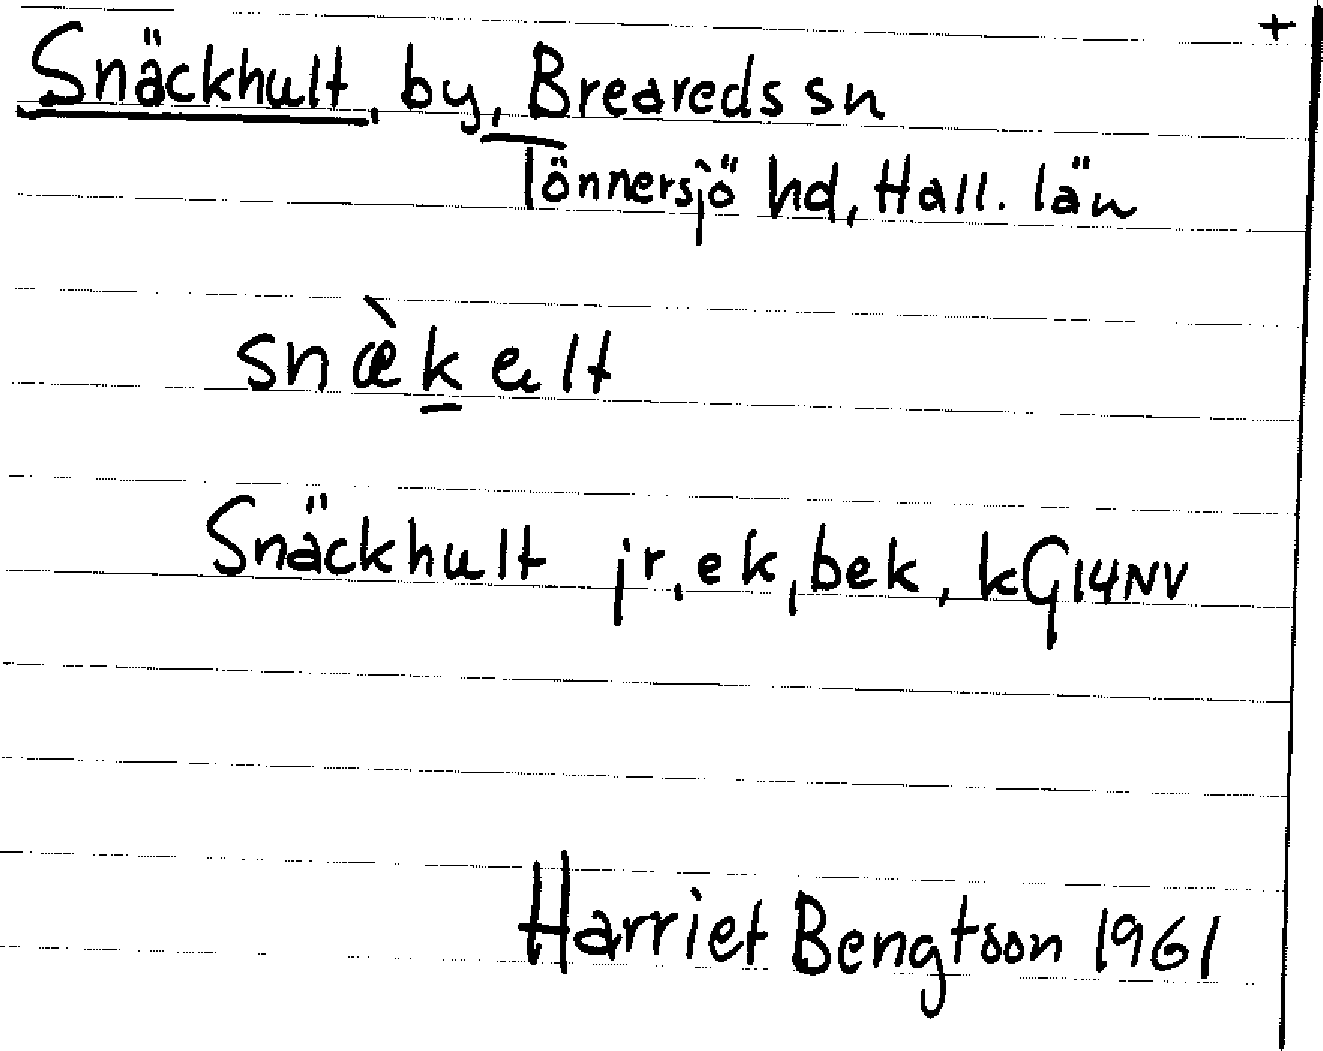 +
Snäckhult, by, Breareds sn
Tönnersjö hd, Hall. län
snæ̀k̲ ult
Snäckhult jr, ek, bek, kG14NV
Harriet Bengtson 1961